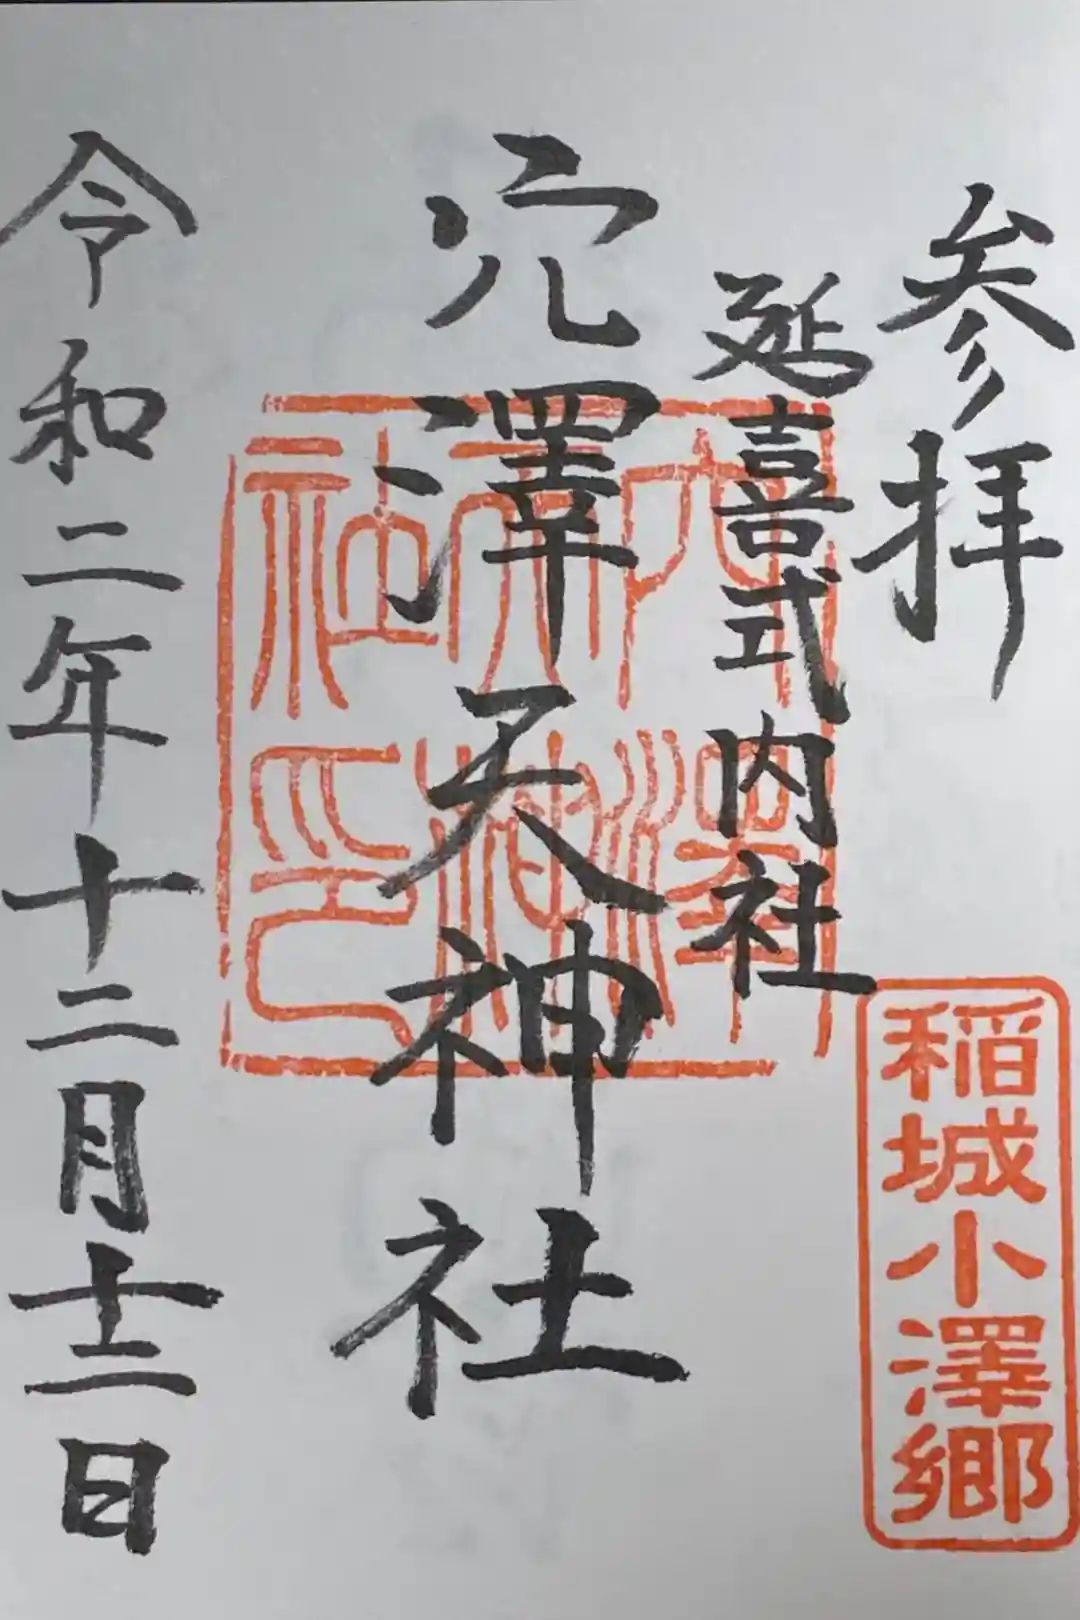 参拝
延喜式内社
稲城小澤郷
穴澤天神社
穴澤天神社印
令和二年十二月十二日